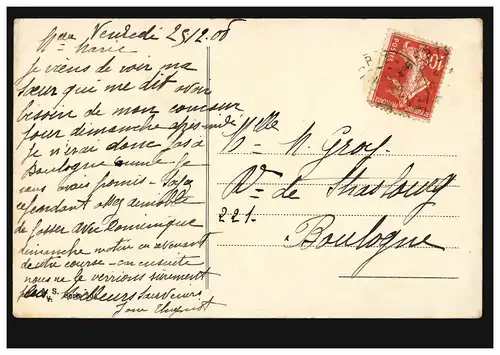 Vendredi 25/12.08
Marie
Je viens de voir ma
sœur qui me dit avoir
besoin de mon concours
pour dimanche après midi
Je n'irai donc pas à
Boulogne comme je
vous avais promis - Soyez
cependant assez aimable
de passer avec Dominique
dimanche matin en revenant
de votre course - ou ensuite
nous ne le verrions sûrement
pas
Meilleurs Souvenirs
Mlle
M. Groy
de Strasbourg
221-
Boulogne
POSTES
10